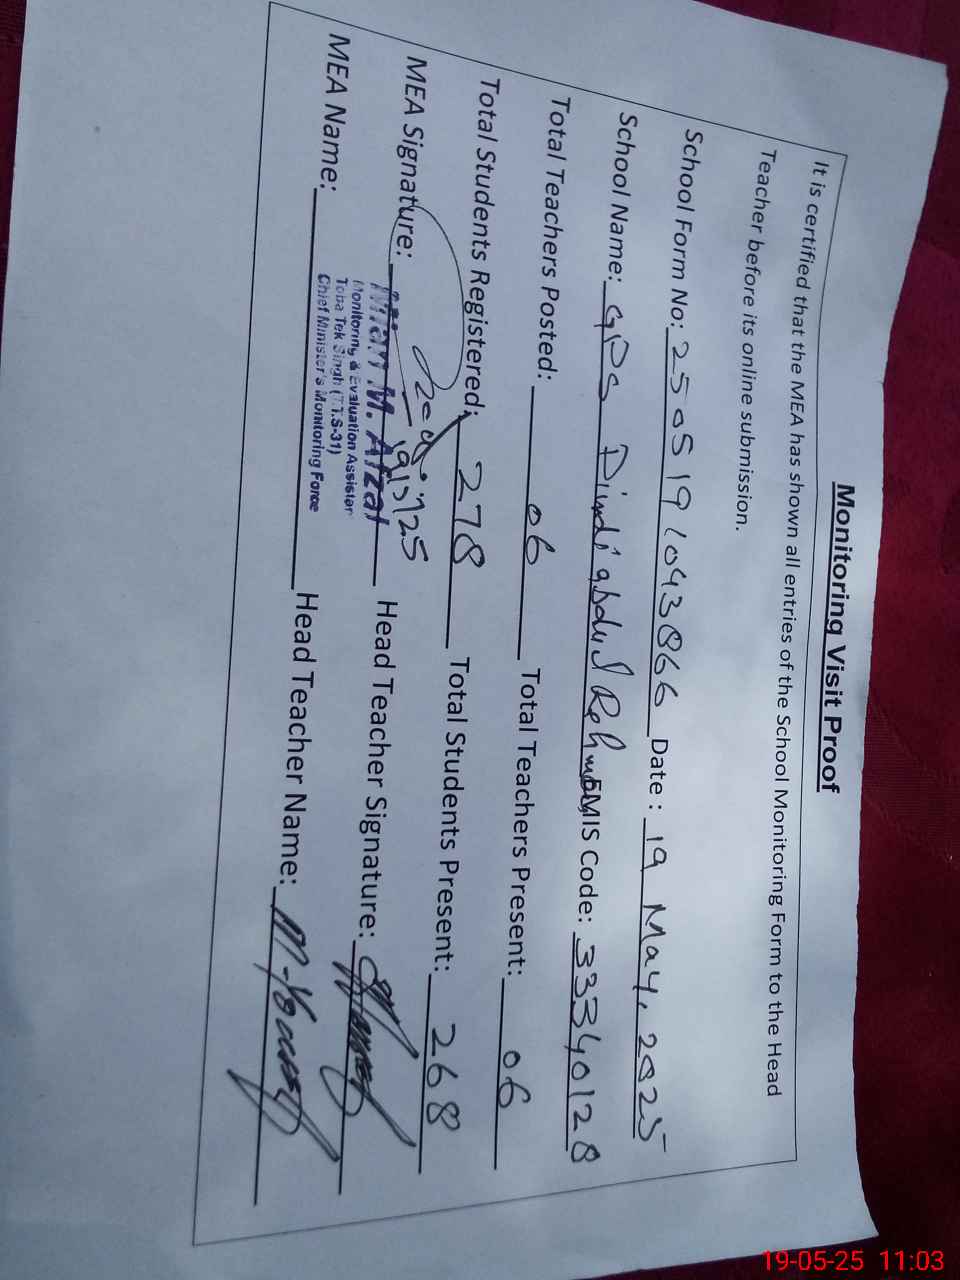 Monitoring Visit Proof
It is certified that the MEA has shown all entries of the School Monitoring Form to the Head
Teacher before its online submission.
School Form No: 2505191043866 Date : 19 May, 2025
School Name: GPS Dindi abdul Rehman EMIS Code: 33340128
Total Teachers Posted: 06 Total Teachers Present: 06
Total Students Registered: 278 Total Students Present: 268
MEA Signature: 19/5/25 Head Teacher Signature:
Mian M. Afzal
Monitoring & Evaluation Assistant
Toba Tek Singh (T.T.S-31)
Chief Minister's Monitoring Force
MEA Name: Head Teacher Name:
19-05-25 11:03